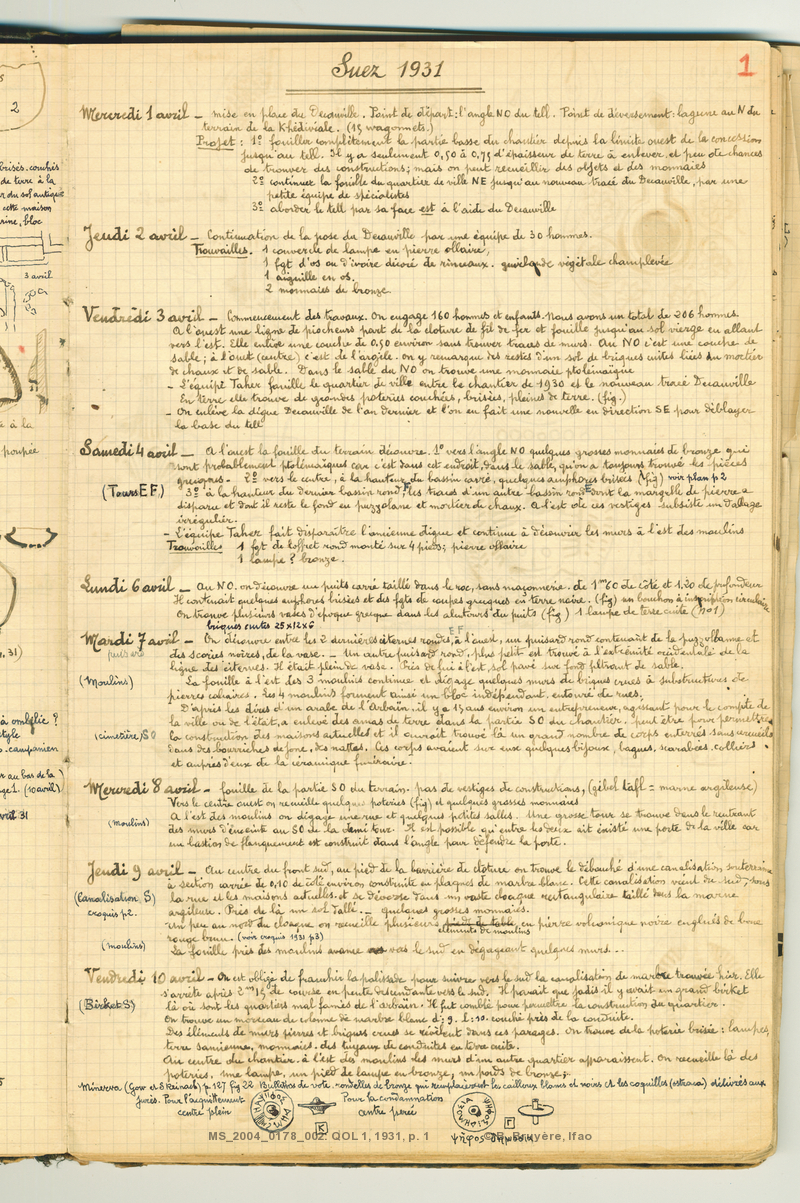 Suez 1931
1
Mercredi 1 avril – mise en place du Decauville. Point de départ: l'angle NO du tell. Point de déversement: lagune au N du
terrain de la Khédiviale. (15 wagonnets.)
Projet: 1º fouiller complètement la partie basse du chantier depuis la limite ouest de la concession
jusqu'au tell. Il y a seulement 0,50 à 0,75 d'épaisseur de terre à enlever et peu de chances
de trouver des constructions; mais on peut recueillir des objets et des monnaies
2º continuer la fouille du quartier de ville NE jusqu'au nouveau tracé du Decauville, par une
petite équipe de spécialistes
3º aborder le tell par sa face est à l'aide du Decauville
Jeudi 2 avril – Continuation de la pose du Decauville par une équipe de 30 hommes.
Trouvailles. 1 couvercle de lampe en pierre ollaire,
1 fgt d'os ou d'ivoire décoré de rinceaux. guirlande végétale champlevée
1 aiguille en os.
2 monnaies de bronze
Vendredi 3 avril – Commencement des travaux. On engage 160 hommes et enfants. Nous avons un total de 206 hommes.
A l'ouest une ligne de piocheurs part de la cloture de fil de fer et fouille jusqu'au sol vierge en allant
vers l'est. Elle enlève une couche de 0,50 environ sans trouver traces de murs. Au NO c'est une couche de
sable; à l'Ouest (centre) c'est de l'argile. on y remarque des restes d'un sol de briques cuites liées au mortier
de chaux et de sable. Dans le sable du NO on trouve une monnaie ptolémaïque
– L'équipe Taher fouille le quartier de ville entre le chantier de 1930 et le nouveau tracé Decauville
En terre elle trouve de grandes poteries couchées, brisées, pleines de terre. (fig.)
– On enlève la digue Decauville de l'an dernier et l'on en fait une nouvelle en direction SE pour déblayer
la base du tell
Samedi 4 avril – A l'ouest la fouille du terrain découvre. 1º vers l'angle NO quelques grosses monnaies de bronze qui
sont probablement ptolémaïques car c'est dans cet endroit, dans le sable, qu'on a toujours trouvé les pièces
grecques. 2º vers le centre, à la hauteur du bassin carré, quelques amphores brisées (fig) voir plan p 2
(Tours E F) 3º à la hauteur du dernier bassin rond, les traces d'un autre bassin rond dont la margelle de pierre a
disparu et dont il reste le fond en puzzolane et mortier de chaux. A l'est de ces vestiges subsiste un dallage
irrégulier.
– L'équipe Taher fait disparaître l'ancienne digue et continue à découvrir les murs à l'est des moulins
Trouvailles 1 fgt de coffret rond monté sur 4 pieds; pierre ollaire
1 lampe ? bronze.
Lundi 6 avril – Au NO. on découvre un puits carré taillé dans le roc, sans maçonnerie. de 1m60 de côté et 1.20 de profondeur
Il contenait quelques amphores brisées et des fgts de coupes grecques en terre noire. (fig) un bouchon à inscription circulaire
On trouve plusieurs vases d'époque grecque dans les alentours du puits (fig) 1 lampe de terre cuite (no 1)
briques cuites 25x12x6
Mardi 7 avril – On découvre entre les 2 dernières citernes rondes, E F à l'ouest, un puisard rond contenant de la puzzollane et
des scories noires, de la vase. – Un autre puisard rond, plus petit est trouvé à l'extrémité occidentale de la
ligne des citernes. Il était plein de vase. Près de lui à l'est, sol pavé sur fond filtrant de sable.
(Moulins) La fouille à l'est des 3 moulins continue et dégage quelques murs de briques crues à substructures de
pierres calcaires. les 4 moulins forment ainsi un bloc indépendant, entouré de rues.
D'après les dires d'un arabe de l'Arbaïn. il y a 15 ans environ un entrepreneur, agissant pour le compte de
la ville ou de l'état, a enlevé des amas de terre dans la partie SO du chantier. Peut être pour permettre
(cimetière) SO la construction des maisons actuelles et il aurait trouvé là un grand nombre de corps enterrés sans cercueils
dans des bourriches de jonc, des nattes. Ces corps avaient sur eux quelques bijoux, bagues, scarabées. colliers
et auprès d'eux de la céramique funéraire.
Mercredi 8 avril – fouille de la partie SO du terrain. pas de vestiges de constructions, (gébel tafl = marne argileuse)
Vers le centre ouest on recueille quelques poteries (fig) et quelques grosses monnaies
(moulins) A l'est des moulins on dégage une rue et quelques petites salles. Une grosse tour se trouve dans le rentrant
des murs d'enceinte au SO de la demi tour. Il est possible qu'entre les deux ait existé une porte de la ville car
un bastion de flanquement est construit dans l'angle pour défendre la porte.
Jeudi 9 avril – Au centre du front sud, au pied de la barrière de cloture on trouve le débouché d'une canalisation souterraine
(Canalisation S) à section carrée de 0,10 de côté environ construite en plaques de marbre blanc. Cette canalisation vient du sud, sous
croquis p2. la rue et les maisons actuelles et se déverse dans un vaste cloaque rectangulaire taillé dans la marne
argileuse. Près de là un sol dallé. – quelques grosses monnaies.
Un peu au nord du cloaque on recueille plusieurs éléments de moulins en pierre volcanique noire englués de boue
rouge brun. (voir croquis 1931 p3)
(moulins) La fouille près des moulins avance vers le sud en dégageant quelques murs...
Vendredi 10 avril – On est obligé de franchir la palissade pour suivre vers le sud la canalisation de marbre trouvée hier. Elle
s'arrête après 2m15 de course en pente descendante vers le sud. Il paraît que jadis il y avait un grand birket
(Birket S) là où sont les quartiers mal famés de l'arbaïn. Il fut comblé pour permettre la construction du quartier.
On trouve un morceau de colonne de marbre blanc d: 9. L: 50. couché près de la conduite.
Des éléments de murs pierres et briques crues se révèlent dans ces parages. On trouve de la poterie brisée: lampes,
terre samienne, monnaies. des tuyaux de conduites en terre cuite.
Au centre du chantier. à l'est des moulins les murs d'un autre quartier apparaissent. On recueille là des
poteries, une lampe, un pied de lampe en bronze, un poids de bronze;
Minerva (Gow et S Reinach) p. 127 fig 22 Bulletins de vote. rondelles de bronze qui remplaçaient les cailloux blancs et noirs et les coquilles (ostraca) délivrées aux
jurés. Pour l'acquittement
centre plein
K
Pour la condamnation
centre percé
Γ
ψῆφος δημοσία
MS_2004_0178_002. QOL 1, 1931, p. 1 © B. Bruyère, Ifao